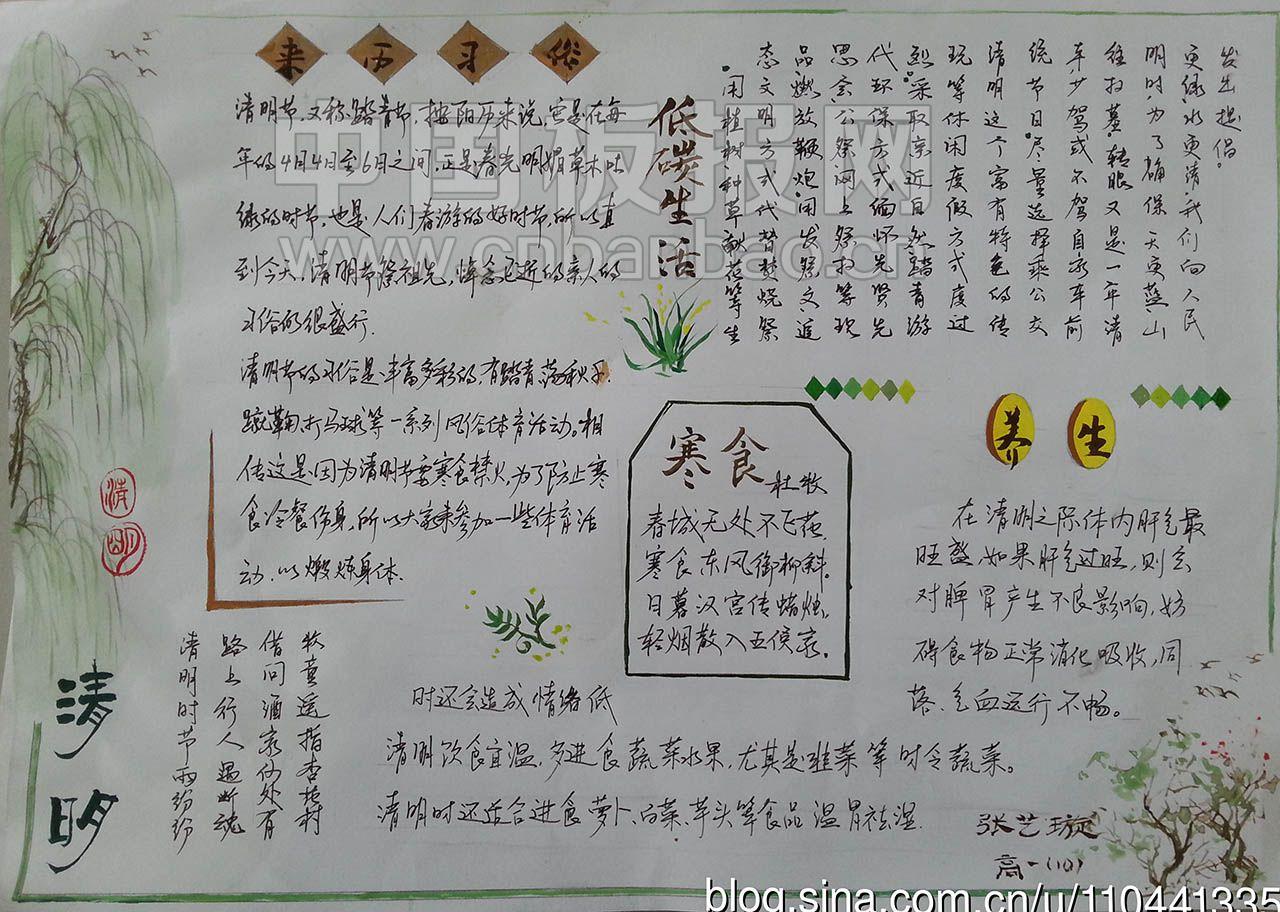 来历习俗
清明节,又称踏青节,按阳历来说,它是在每
年的4月4日至6日之间,正是春光明媚草木吐
绿的时节,也是人们春游的好时节,所以直
到今天,清明节祭祖先,悼念已近的亲人的
习俗仍很盛行.
清明节的习俗是丰富多彩的,有踏青,荡秋千.
蹴鞠,打马球等一系列风俗体育活动。相
传这是因为清明节要寒食禁火,为了防止寒
食冷餐伤身,所以大家来参加一些体育活
动.以煅炼身体.
低碳生活
发出提倡:
更绿,水更清,我们向人民
明时,为了确保天更蓝,山
往扫墓,转眼又是一年清
车少驾或不驾自家车前
统节日,尽量选择乘公交
清明这个富有特色的传
玩等休闲度假方式度过
烈,采取亲近自然,踏青游
代环保方式缅怀先贤先
思念,公祭,网上祭扫等现
品,燃放鞭炮,用发祭文,追
态文明方式代替焚烧祭
用植树、种草、献花等生
寒食
杜牧
春城无处不飞花,
寒食东风御柳斜。
日暮汉宫传蜡烛,
轻烟散入五侯家。
养生
在清明之际,体内肝气最
旺盛,如果肝气过旺,则会
对脾胃产生不良影响,妨
碍食物正常消化吸收,同
时还会造成情绪低
落、气血运行不畅。
清明饮食宜温,多进食蔬菜水果,尤其是韭菜等时令蔬菜。
清明时还适合进食萝卜、白菜、芋头等食品温胃祛湿.
清明时节雨纷纷
路上行人遇断魂
借问酒家何处有
牧童遥指杏花村
清明
清明
张艺璇
高一(10)
中国板报网
www.cnbanbao.cn
blog.sina.com.cn/u/110441335